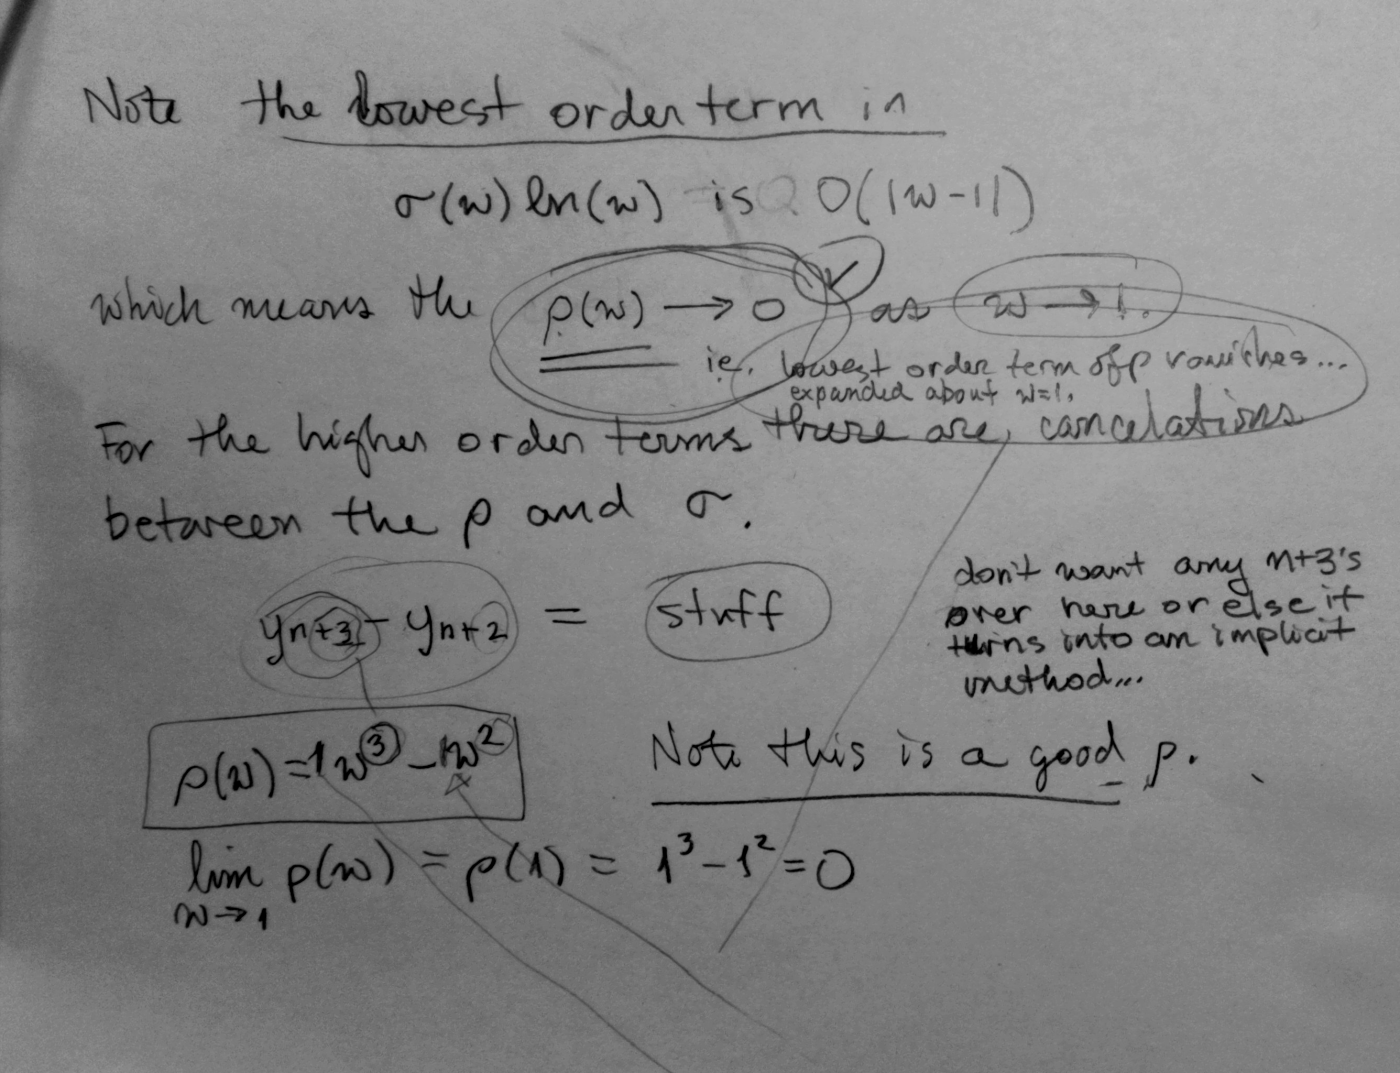 Note the lowest order term in
σ(w) ln(w) is O(|w-1|)
which means the ρ(w) → 0 as w → 1.
ie. lowest order term of ρ vanishes...
expanded about w=1.
For the higher order terms there are cancelations
between the ρ and σ.
yn+3 - yn+2 = stuff
don't want any n+3's
over here or else it
turns into an implicit
method...
ρ(w) = 1w³ - 1w²
Note this is a good ρ.
lim ρ(w) = ρ(1) = 1³ - 1² = 0
w→1